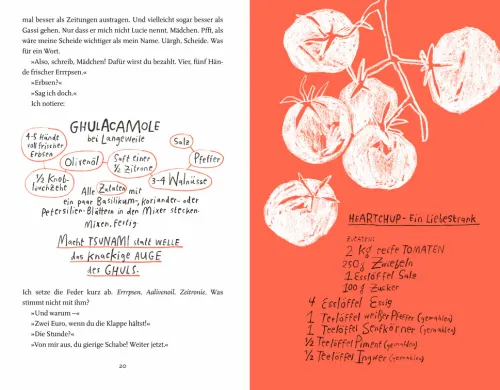 mal besser als Zeitungen austragen. Und vielleicht sogar besser als
Gassi gehen. Nur dass er mich nicht Lucie nennt. Mädchen. Pfft, als
wäre meine Scheide wichtiger als mein Name. Uärgh. Scheide. Was
für ein Wort.
»Also, schreib, Mädchen! Dafür wirst du bezahlt. Vier, fünf Hän-
de frischer Errrpsen.«
»Erbsen?«
»Sag ich doch.«
Ich notiere:
GHULACAMOLE
bei Langeweile
4-5 Hände
voll frischer
Erbsen
Olivenöl
Saft einer
½ Zitrone
Salz
Pfeffer
½ Knob-
lauchzehe
3-4 Walnüsse
Alle Zutaten mit
ein paar Basilikum-, Koriander- oder
Petersilien-Blättern in den Mixer stecken.
Mixen, fertig.
Macht TSUNAMI statt WELLE
das knackige AUGE
des GHULS.
Ich setze die Feder kurz ab. Errrpsen. Aalivenoil. Zeitronie. Was
stimmt nicht mit ihm?
»Und warum –«
»Zwei Euro, wenn du die Klappe hältst!«
»Die Stunde?«
»Von mir aus, du gierige Schabe! Weiter jetzt.«
20
HEARTCHUP - Ein Liebestrank
ZUTATEN:
2 kg reife TOMATEN
250 g Zwiebeln
1 Esslöffel Salz
100 g Zucker
4 Esslöffel Essig
1 Teelöffel weißer Pfeffer (gemahlen)
1 Teelöffel Senfkörner (gemahlen)
½ Teelöffel Piment (gemahlen)
½ Teelöffel Ingwer (gemahlen)